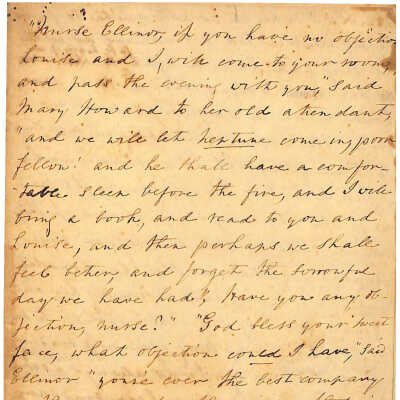 "Nurse Ellinor, if you have no objection
Louise and I, will come to your room,
and pass the evening with you," said
Mary Howard to her old attendant,
"and we will let neptune come in, poor
fellow! and he shall have a comfor-
table sleep before the fire, and I will
bring a book, and read to you and
Louise, and then perhaps we shall
feel better, and forget the sorrowful
day we have had; Have you any ob-
jection, nurse?" "God bless your sweet
face, what objection could I have" said
Ellinor "youre ever the best company